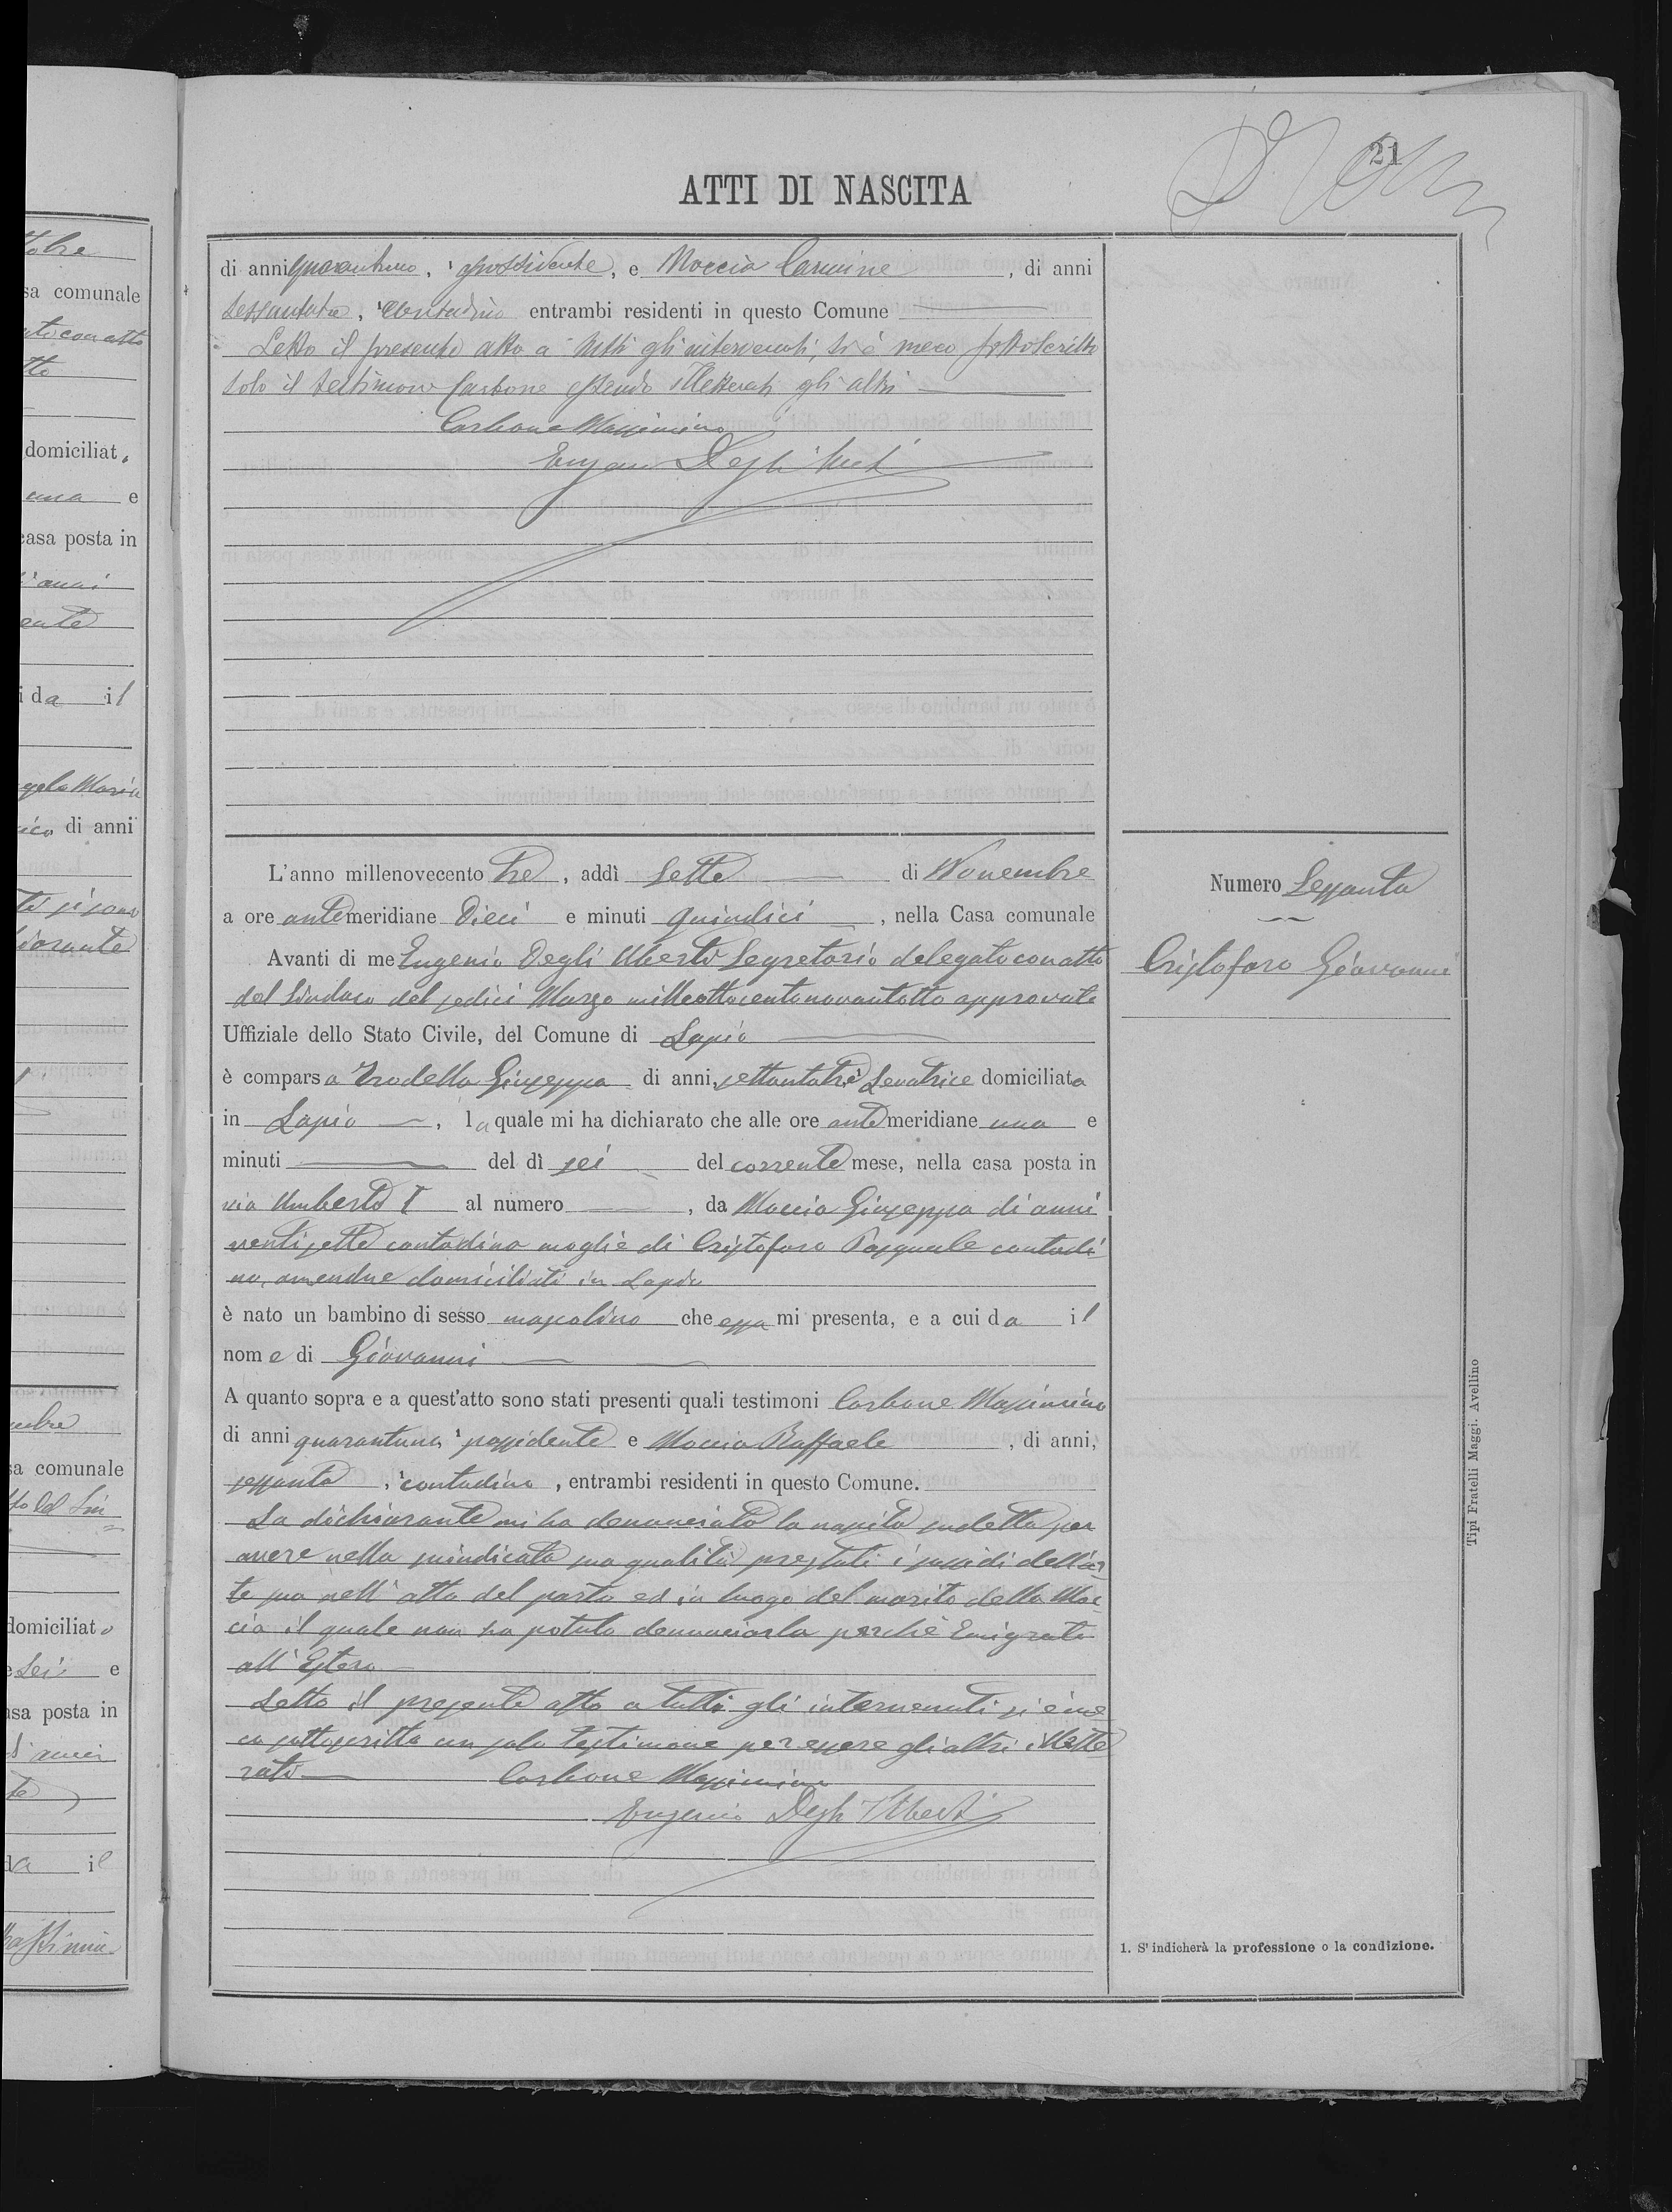 21
ATTI DI NASCITA
di anni quarantuno, possidente, e Moccia Carmine, di anni
sessantatre, contadino entrambi residenti in questo Comune
Letto il presente atto a tutti gli intervenuti, si è meco sottoscritto
solo il testimone Carbone essendo illetterati gli altri
Carbone Massimino
Eugenio Degli Uberti
L'anno millenovecento tre, addì sette di Novembre
a ore antemeridiane dieci e minuti quindici, nella Casa comunale
Avanti di me Eugenio Degli Uberti Segretario delegato con atto
del Sindaco del sedici Marzo milleottocentonovantotto approvato
Uffiziale dello Stato Civile, del Comune di Lapio
è comparsa Trodella Giuseppa di anni settantatrè Levatrice domiciliata
in Lapio, la quale mi ha dichiarato che alle ore antemeridiane una e
minuti del dì sei del corrente mese, nella casa posta in
via Umberto I al numero , da Moccia Giuseppa di anni
ventisette contadina moglie di Cristofaro Pasquale contadi
no, amendue domiciliati in Lapio
è nato un bambino di sesso mascolino che essa mi presenta, e a cui da il
nome di Giovanni
A quanto sopra e a quest'atto sono stati presenti quali testimoni Carbone Massimino
di anni quarantuno possidente e Moccia Raffaele, di anni,
sessanta, contadino, entrambi residenti in questo Comune.
La dichiarante mi ha denunciato la nascita sudetta per
avere nella suindicata sua qualità prestati i sussidi dell'ar
te sua nell'atto del parto ed in luogo del marito della Moc
cia il quale non ha potuto denunciarla perchè Emigrato
all'Estero
Letto il presente atto a tutti gli intervenuti si è me
co sottoscritto un solo testimone per essere gli altri illette
rati Carbone Massimino
Eugenio Degli Uberti
Numero Sessanta
Cristofaro Giovanni
1. S'indicherà la professione o la condizione.
Tipi Fratelli Maggi. Avellino